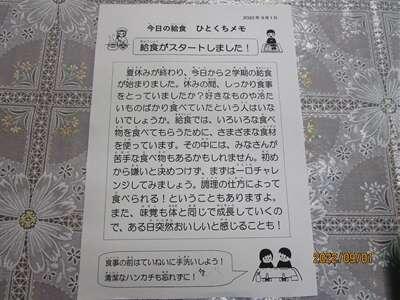 2022年9月1日
今日の給食　ひとくちメモ
給食がスタートしました！
夏休みが終わり、今日から2学期の給食
が始まりました。休みの間、しっかり食事
をとっていましたか？好きなものや冷た
いものばかり食べていたという人はいな
いでしょうか。給食では、いろいろな食べ
物を食べてもらうために、さまざまな食材
を使っています。その中には、みなさんが
苦手な食べ物もあるかもしれません。初め
から嫌いと決めつけず、まずは一口チャレ
ンジしてみましょう。調理の仕方によって
食べられる！ということもありますよ。
また、味覚も体と同じで成長していくの
で、ある日突然おいしいと感じることも！
食事の前はていねいに手洗いしよう！
清潔なハンカチも忘れずに！
2022/09/01